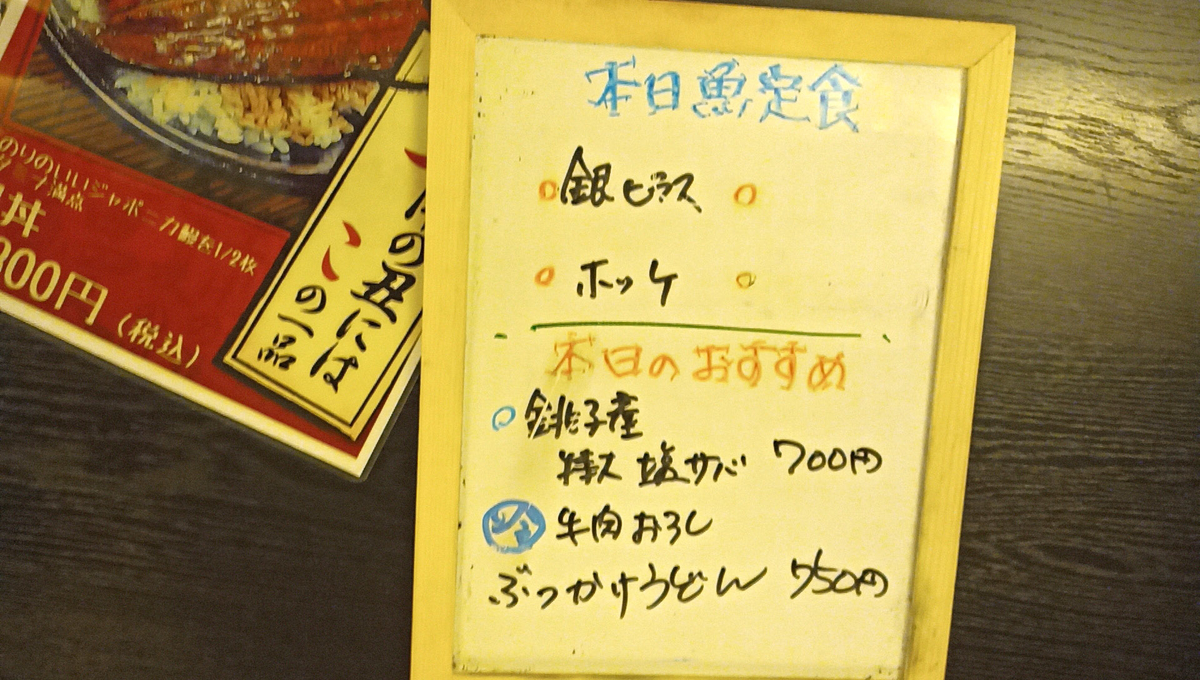 本日魚定食
銀ヒラス
ホッケ
本日のおすすめ
銚子産
特大 塩サバ 700円
牛肉おろし
ぶっかけうどん 750円
のりのいいジャポニカ鰻を1/2枚
満点
丼
800円(税込)
の丑には
この一品